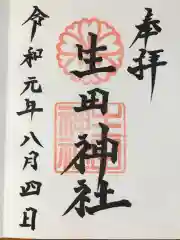 奉拝
生田神社
令和元年八月四日